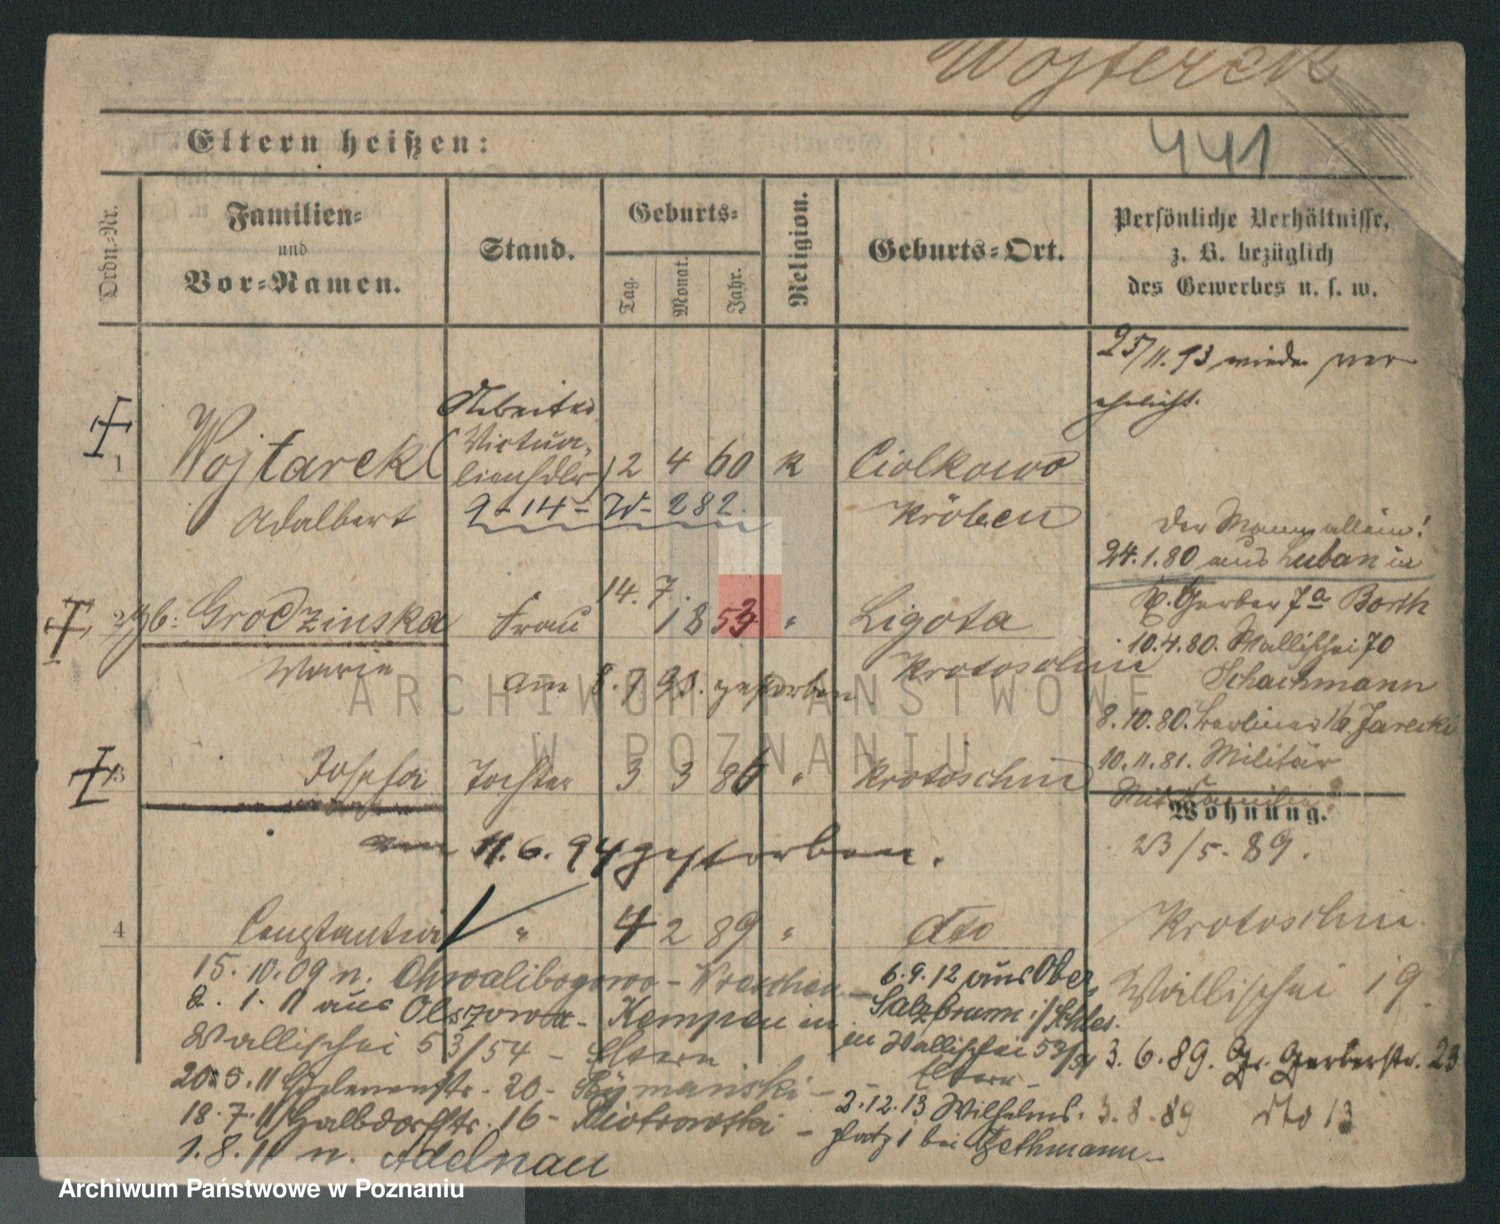 Wojterek
Eltern heißen:
441
Ordn.-Nr.
Familien-
und
Vor-Namen.
Stand.
Geburts-
Tag.
Monat.
Jahr.
Religion.
Geburts-Ort.
Persönliche Verhältnisse,
z. B. bezüglich
des Gewerbes u. s. w.
25/11.93 wieder ver
ehelicht.
1 Wojtarek (Arbeiter Victualienhdlr) 2 4 60 k Ciolkowo
Adalbert 9-14- W- 282. Kröben
Der Mann allein!
24.1.80 aus Luban in
2 gb: Grodzinska Frau 14. 7. 1853 " Ligota
Marie Krotoschin
am 8.7.93. gestorben
Gr. Gerber 7a Borth
10.4.80. Wallischei 70
Schachmann
8.10.80. Berliner 16 Jarecki
10.11.81. Militär
3 Josefa Tochter 3 3 86 " Krotoschin
Mit Familie
Wohnung.
am 11.6.94 gestorben.
23/5.89.
4 Constantia " 4 2 89 " dto
Krotoschin
Wallischei 19.
15.10.09 n. Chwalibogowo - Wreschen
2.1.11 aus Olszowa - Kempen in
Wallischei 53/54 - Eltern
20.5.11 - 20 - Szymanski -
18.7.11 Halbdorfstr. 16 - Piotrowski -
1.8.11 n. Adelnau
6.9.12 aus Ober
Salzbrunn i/Schles.
in Wallischei 53/54
Eltern -
2.12.13 Wilhelms-
platz 1 bei Bethmann -
3.6.89. Gr. Gerberstr. 23
3.8.89 dto 13
ARCHIWUM PAŃSTWOWE
W POZNANIU
Archiwum Państwowe w Poznaniu